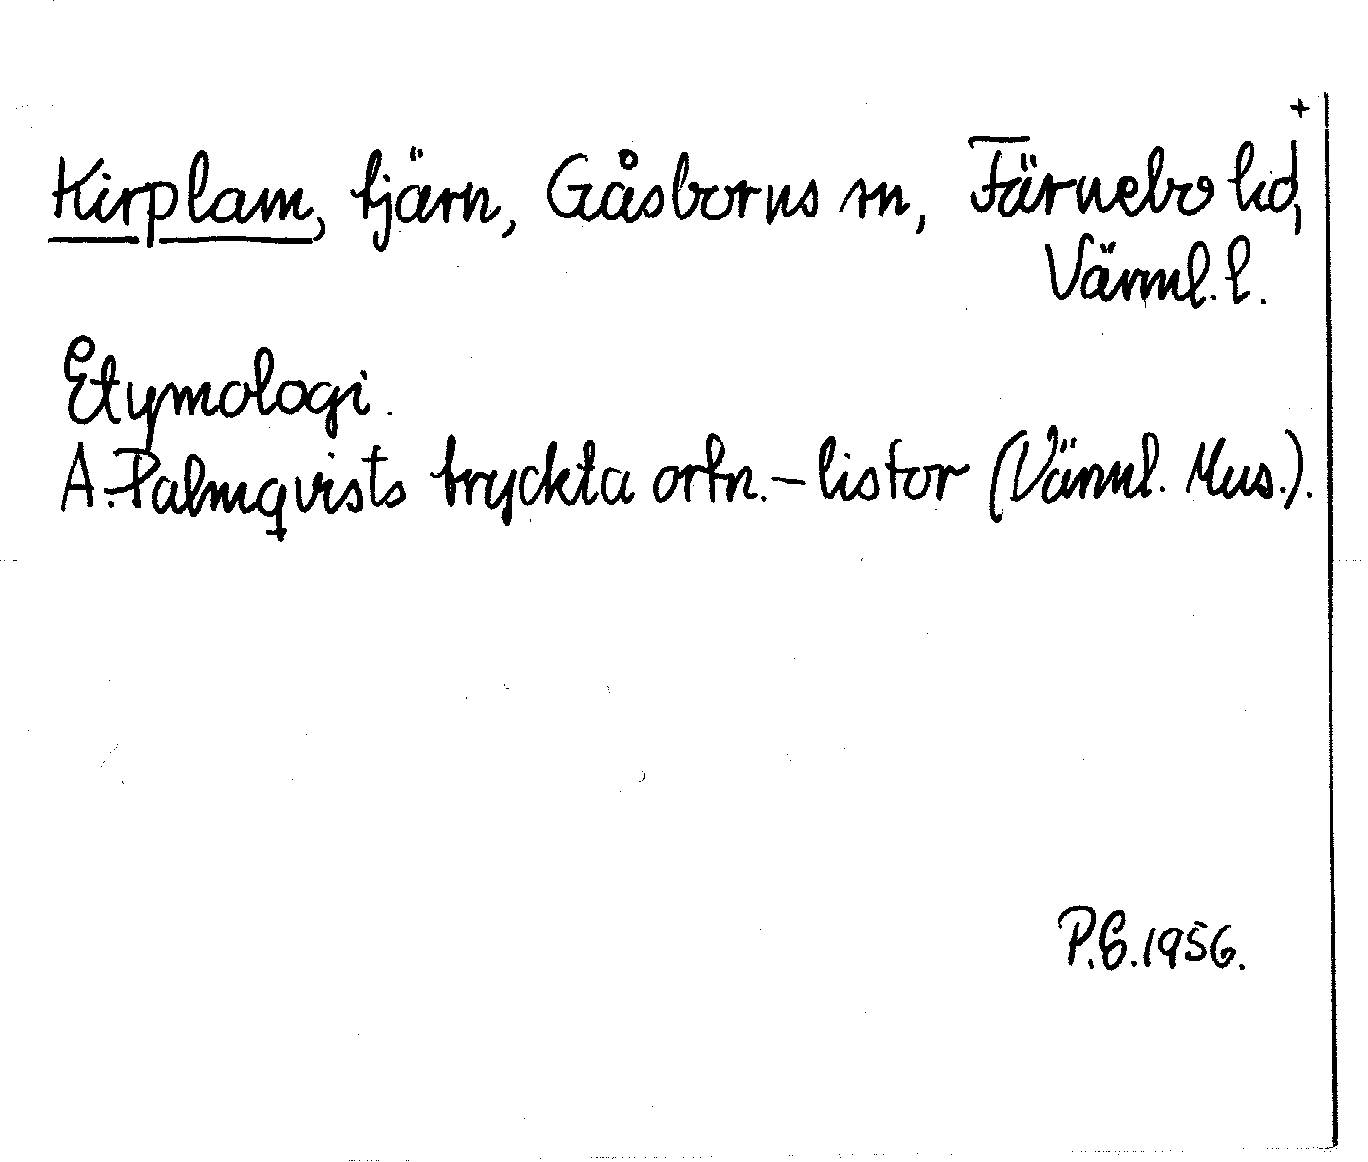 +
Kirplam, tjärn, Gåsborns sn, Färnebo hd,
Värml. l.
Etymologi.
A. Palmqvists tryckta ortn.-listor (Värml. Mus.).
P.G. 1956.